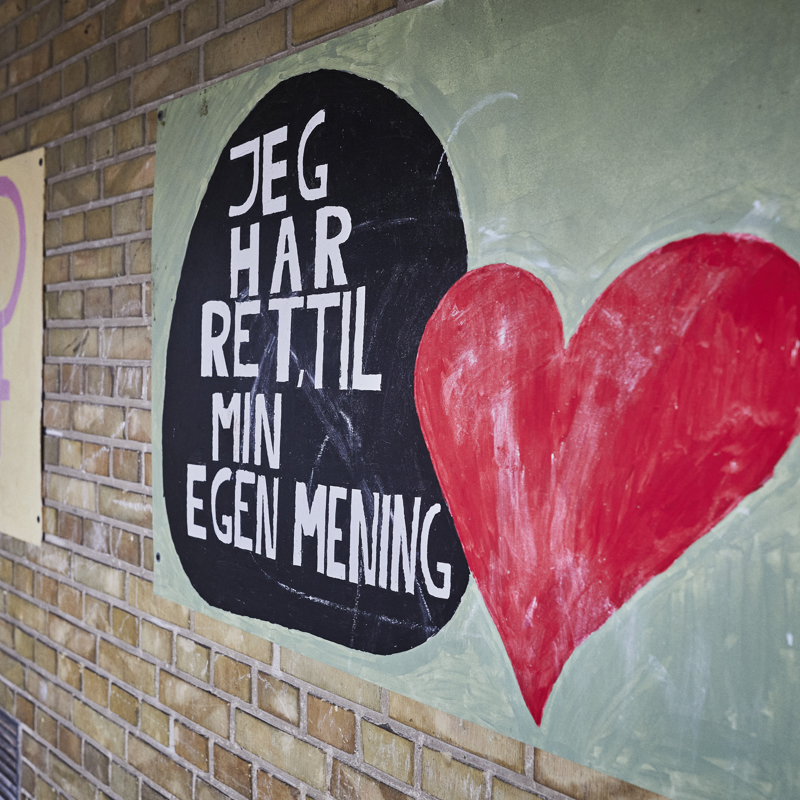 JEG
HAR
RET TIL
MIN
EGEN MENING